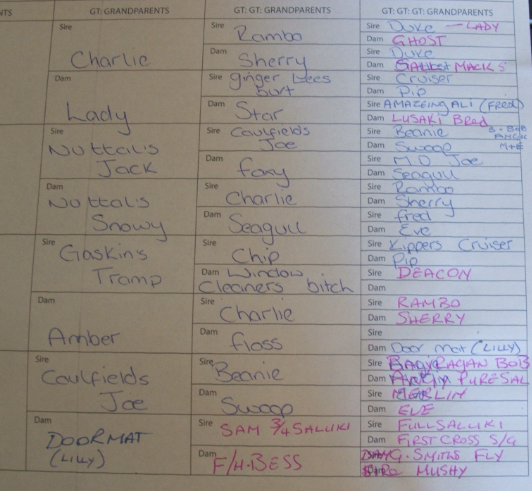 NTS GT: GRANDPARENTS GT: GT: GRANDPARENTS GT: GT: GT: GRANDPARENTS
Sire Charlie
Dam Lady
Sire Nuttal's
Jack
Dam Nuttal's
Snowy
Sire Gaskins
Tramp
Dam Amber
Sire Caulfields
Joe
Dam DOORMAT
(LILLY)
Sire Rambo
Dam Sherry
Sire ginger bees
burt
Dam Star
Sire Caulfields
Joe
Dam foxy
Sire Charlie
Dam Seagull
Sire Chip
Dam Window
Cleaners bitch
Sire Charlie
Dam floss
Sire Beanie
Dam Swoop
Sire SAM 3/4 SALUKI
Dam F/H.BESS
Sire Duke — LADY
Dam GHOST
Sire Duke
Dam MACKS
Sire Cruiser
Dam Pip
Sire AMAZEING ALI (FRED)
Dam LUSAKI Bred
Sire Beanie
Dam Swoop M+E
Sire M.D Joe
Dam Seagull
Sire Rambo
Dam Sherry
Sire fred
Dam Eve
Sire Kippers Cruiser
Dam Pip
Sire DEACON
Dam
Sire RAMBO
Dam SHERRY
Sire
Dam Door mat (LILLY)
Sire RAGAN BOB
Dam PURESAL
Sire MERLIN
Dam EVE
Sire FULLSALUKI
Dam FIRST CROSS S/G
DAM G. SMITHS FLY
SIRE MUSHY